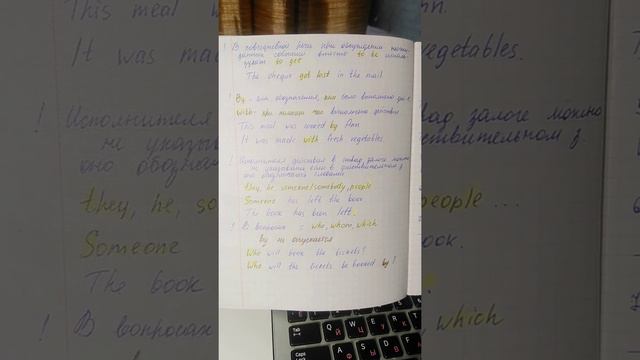 ! В повседневной речи при обсуждении неожи-
данных событий вместо to be исполь-
зуют to get
The cheque got lost in the mail
! By - для обозначения, кем было выполнено дей-е
with - при помощи чего выполнено действие
This meal was cooked by Ann
It was made with fresh vegetables.
! Исполнителя действия в пассив залоге можно
не указывать если в действительном з.
оно обозначено словами
they, he, someone/somebody, people
Someone has left the book.
The book has been left.
! В вопросах с who, whom, which
by не опускается
Who will book the tickets?
Who will the tickets be booked by?
This meal w
nn.
It was made
vegetables.
! Исполнителя
залоге можно
не указы
твительном з.
оно обозна
they, he, so
people ...
Someone
The book
! В вопросах
which
Tab
Caps Lock
Й Ц У К
Ф Ы В А